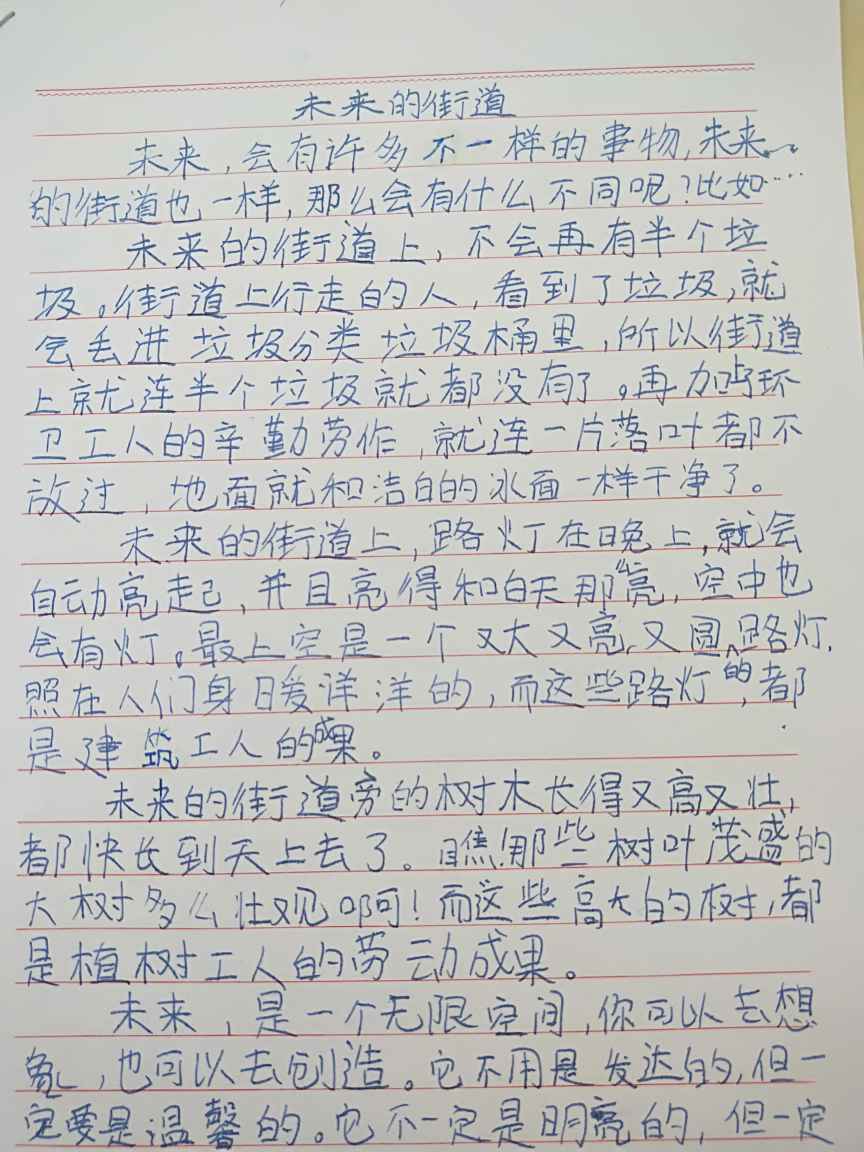 未来的街道
未来,会有许多不一样的事物,未来
的街道也一样,那么会有什么不同呢?比如……
未来的街道上,不会再有半个垃
圾。街道上行走的人,看到了垃圾,就
会丢进垃圾分类垃圾桶里,所以街道
上就连半个垃圾就都没有了。再加上环
卫工人的辛勤劳作,就连一片落叶都不
放过,地面就和洁白的冰面一样干净了。
未来的街道上,路灯在晚上,就会
自动亮起,并且亮得和白天那么亮,空中也
会有灯。最上空是一个又大又亮又圆路灯,
照在人们身暖洋洋的,而这些路灯的,都
是建筑工人的成果。
未来的街道旁的树木长得又高又壮,
都快长到天上去了。瞧!那些树叶茂盛的
大树多么壮观啊!而这些高大的树,都
是植树工人的劳动成果。
未来,是一个无限空间,你可以去想
象,也可以去创造。它不用是发达的,但一
定要是温馨的。它不一定是明亮的,但一定